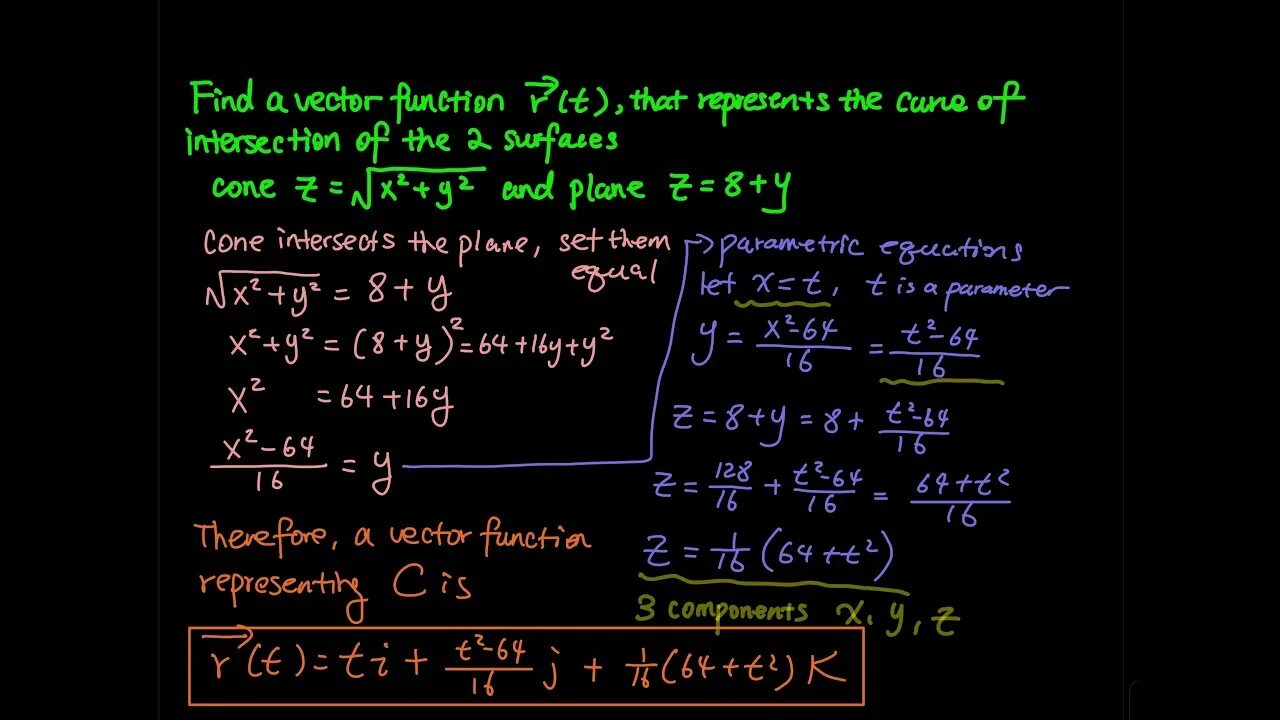 Find a vector function r⃗(t), that represents the curve of
intersection of the 2 surfaces
cone z = √(x² + y²) and plane z = 8 + y
Cone intersects the plane, set them
equal
√(x² + y²) = 8 + y
x² + y² = (8 + y)² = 64 + 16y + y²
x² = 64 + 16y
(x² - 64)/16 = y
→ parametric equations
let x = t, t is a parameter
y = (x² - 64)/16 = (t² - 64)/16
z = 8 + y = 8 + (t² - 64)/16
z = 128/16 + (t² - 64)/16 = (64 + t²)/16
z = 1/16 (64 + t²)
3 components x, y, z
Therefore, a vector function
representing C is
r⃗(t) = t i + (t² - 64)/16 j + 1/16 (64 + t²) K